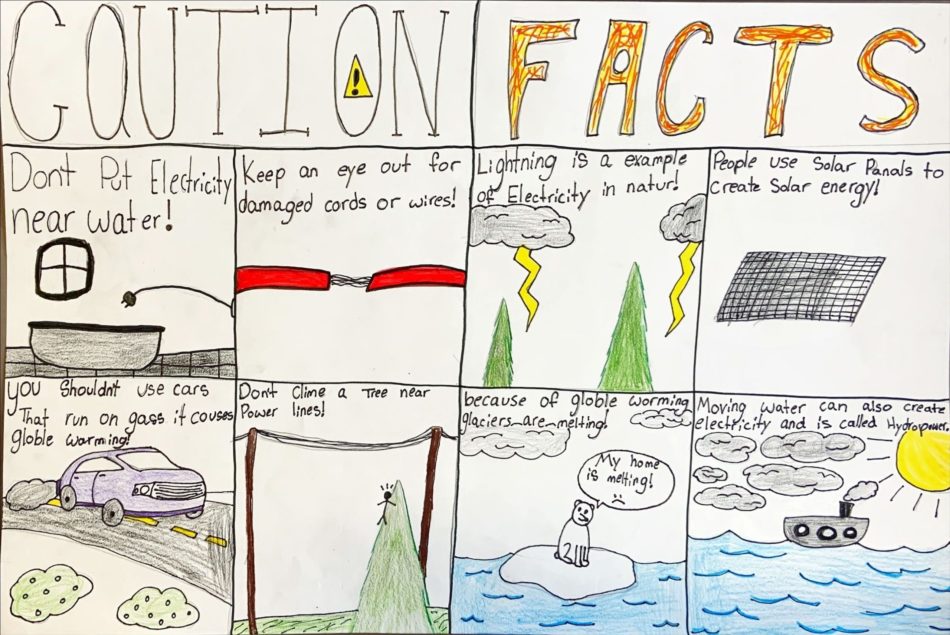 CaUTION
FACTS
Dont Put Electricity
near water!
Keep an eye out for
damaged cords or wires!
Lightning is a example
of Electricity in natur!
People use Solar Panals to
Create Solar energy!
you Shouldn't use cars
That run on gass it couses
globle warming!
Don't Clime a Tree near
Power lines!
because of globle worming
glaciers are melting!
My home
is melting!
Moving water can also create
electricity and is called Hydropower.